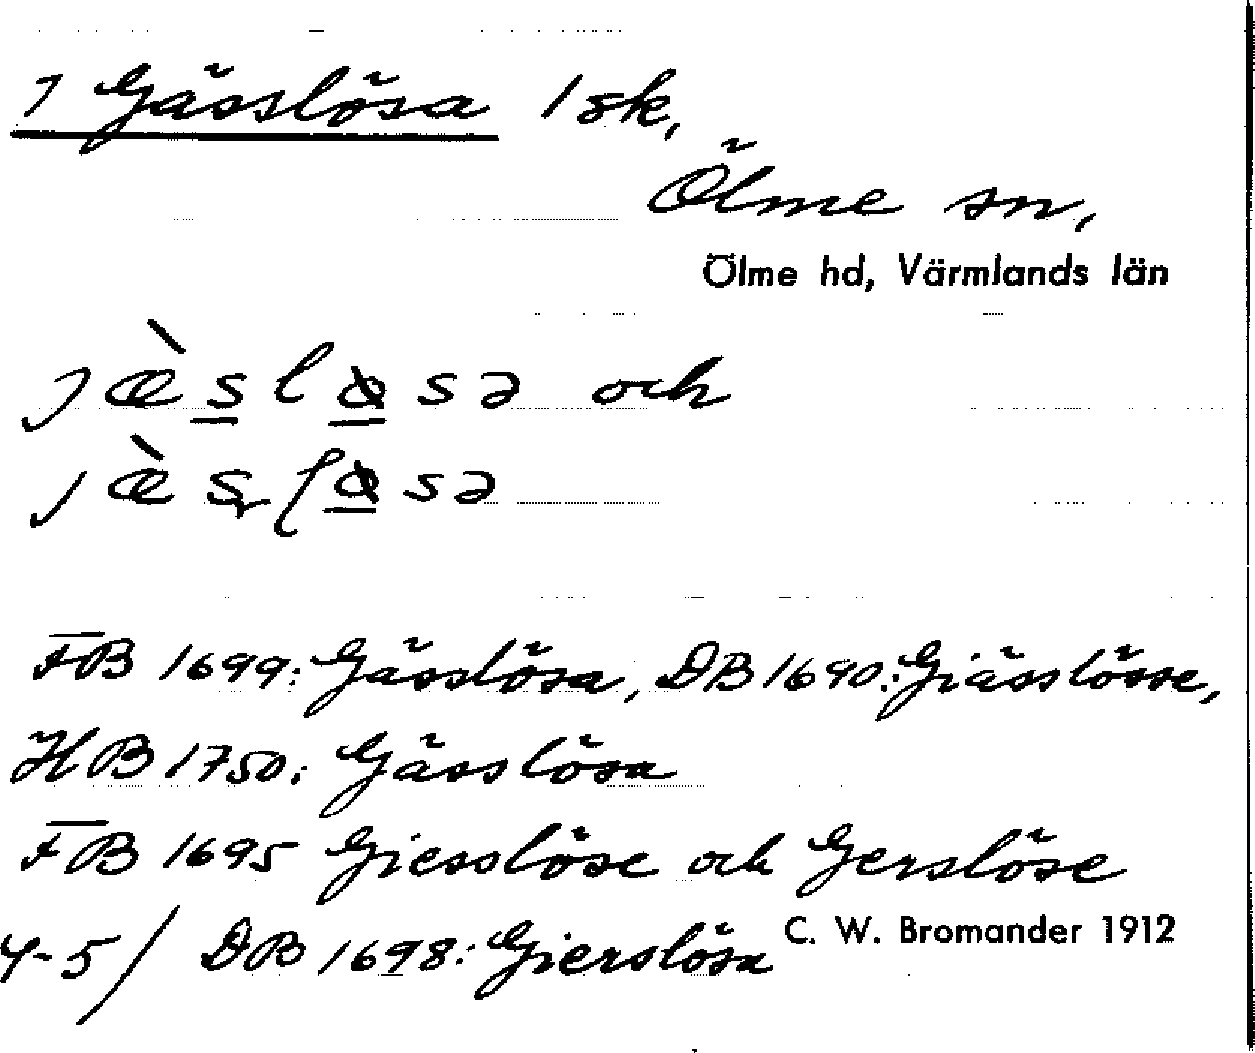 7 Gässlösa 1 sk,
Ölme sn,
Ölme hd, Värmlands län
och
FB 1699: Gässlösa, DB 1690: Giässlösse,
HB 1750: Gässlösa
FB 1695 Giesslöse och Gerslöse
4-5/ DB 1698: Gierslösa
C. W. Bromander 1912